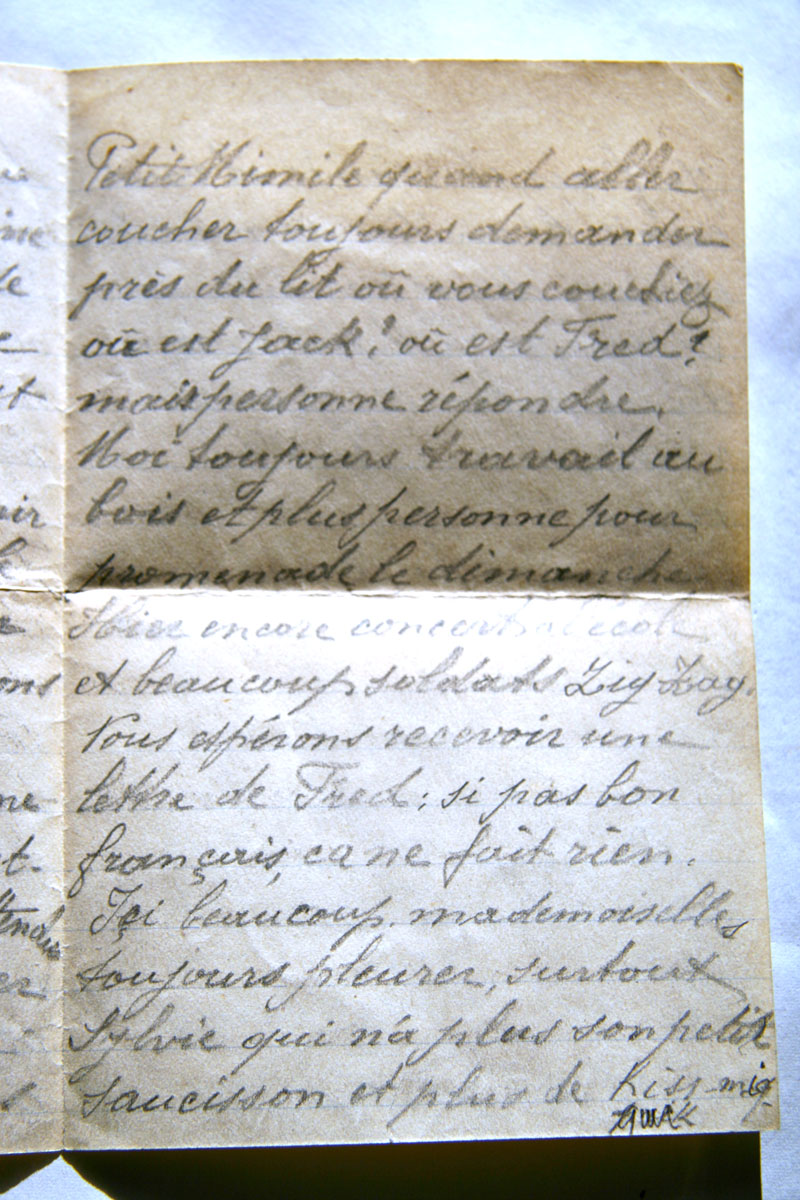 Petit Mimile quand aller
coucher toujours demander
près du lit où vous couchiez
où est Jack? où est Fred?
mais personne répondre.
Moi toujours travail au
bois et plus personne pour
promenade le dimanche
Hier encore concert à l'école
et beaucoup soldats Zig Zag.
Nous espérons recevoir une
lettre de Fred; si pas bon
français, ca ne fait rien.
Içi beaucoup mademoiselles
toujours pleurer, surtout
Sylvie qui n'a plus son petit
saucisson et plus de Kiss-miq-